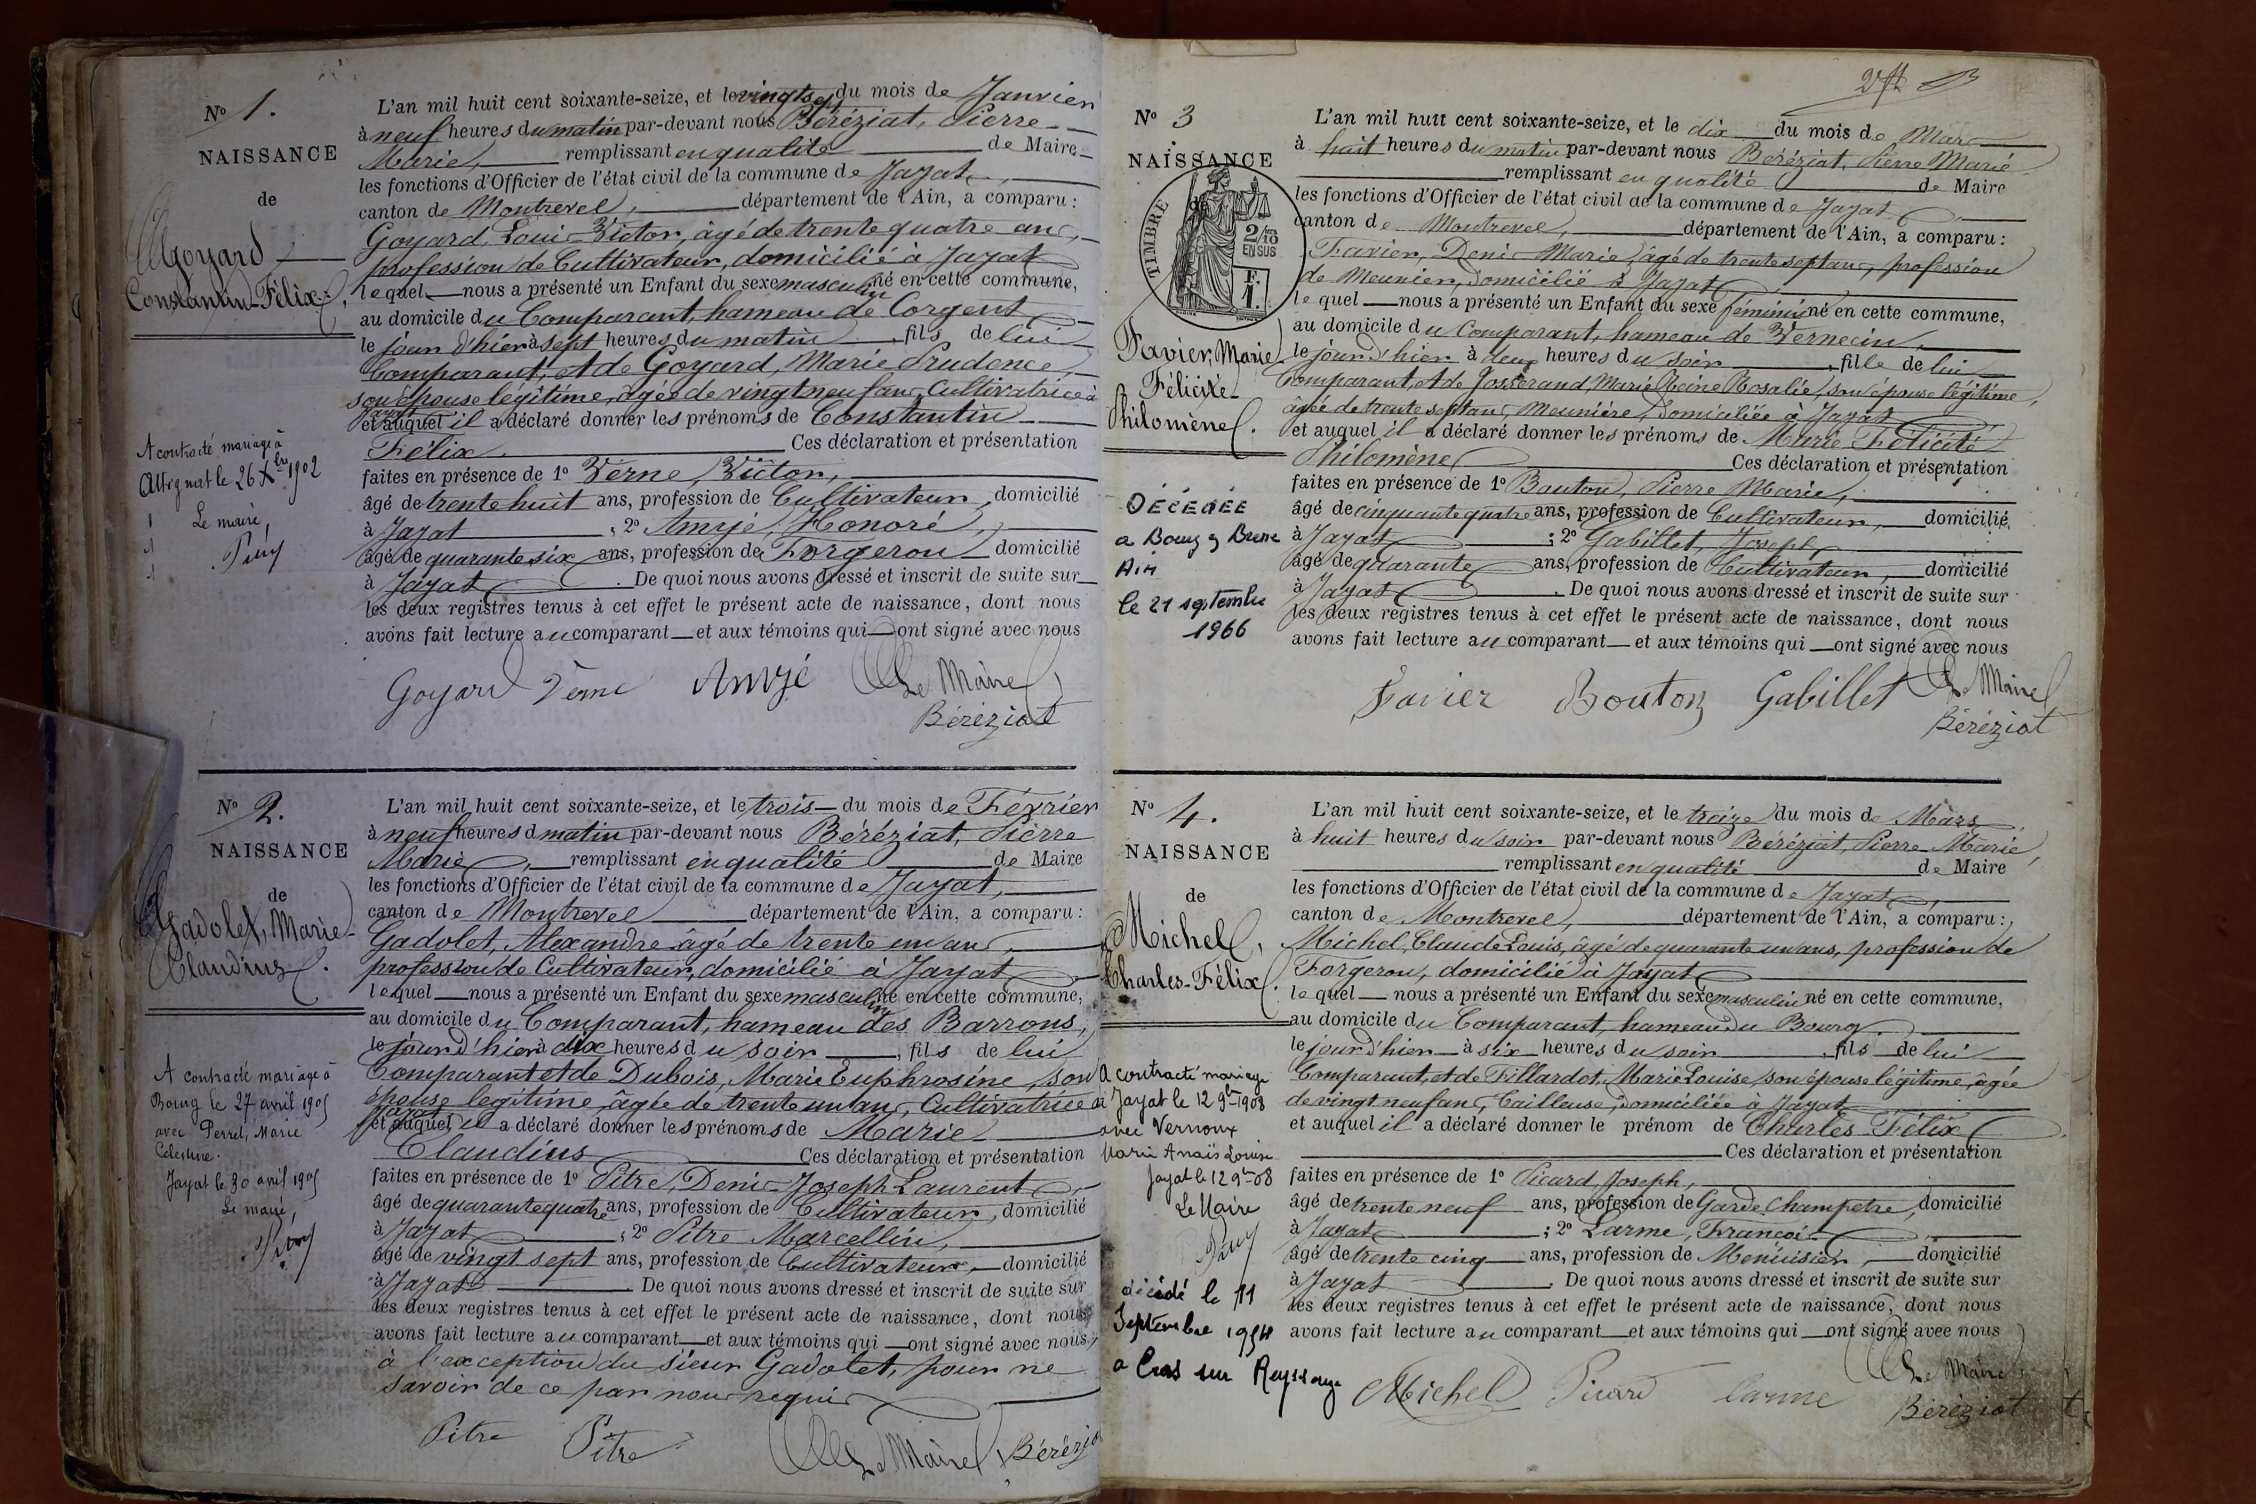 N° 1.
NAISSANCE
de
Goyard
Constantin-Félix.
A contracté mariage à
Attignat le 26 Xbre 1902
Le maire,
L'an mil huit cent soixante-seize, et le vingt sept du mois de Janvier
à neuf heures du matin par-devant nous Béréziat, Pierre
Marie, remplissant en qualité de Maire
les fonctions d'Officier de l'état civil de la commune de Jayat,
canton de Montrevel, département de l'Ain, a comparu :
Goyard, Louis Victor, âgé de trente quatre ans,
profession de Cultivateur, domicilié à Jayat
lequel nous a présenté un Enfant du sexe masculin né en cette commune,
au domicile du Comparant, hameau de Corgent
le jour d'hier à sept heures du matin, fils de lui
Comparant, et de Goyard, Marie Prudence,
son épouse légitime, âgée de vingt neuf ans, Cultivatrice à
Jayat
et auquel il a déclaré donner les prénoms de Constantin
Félix. Ces déclaration et présentation
faites en présence de 1° Verne, Victor,
âgé de trente huit ans, profession de Cultivateur, domicilié
à Jayat ; 2° Amyé, Honoré,
âgé de quarante six ans, profession de Forgeron domicilié
à Jayat. De quoi nous avons dressé et inscrit de suite sur
les deux registres tenus à cet effet le présent acte de naissance, dont nous
avons fait lecture au comparant et aux témoins qui ont signé avec nous
Goyard Verne Amyé Le Maire
Béréziat
N° 2.
NAISSANCE
de
Gadolet, Marie-
Claudius.
A contracté mariage à
Bourg le 27 avril 1905
avec Perret, Marie
Célestine.
Jayat le 30 avril 1905
Le maire,
L'an mil huit cent soixante-seize, et le trois du mois de Février
à neuf heures d matin par-devant nous Béréziat, Pierre
Marie, remplissant en qualité de Maire
les fonctions d'Officier de l'état civil de la commune de Jayat,
canton de Montrevel département de l'Ain, a comparu :
Gadolet, Alexandre âgé de trente un ans,
profession de Cultivateur, domicilié à Jayat
lequel nous a présenté un Enfant du sexe masculin né en cette commune,
au domicile du Comparant, hameau des Barrons,
le jour d'hier à dix heures du soir, fils de lui
Comparant et de Dubois, Marie Euphrosine, son
épouse légitime, âgée de trente un ans, Cultivatrice à
Jayat
et auquel il a déclaré donner les prénoms de Marie
Claudius Ces déclaration et présentation
faites en présence de 1° Pitre, Denis Joseph Laurent,
âgé de quarante quatre ans, profession de Cultivateur, domicilié
à Jayat ; 2° Pitre Marcellin,
âgé de vingt sept ans, profession de Cultivateur, domicilié
à Jayat. De quoi nous avons dressé et inscrit de suite sur
les deux registres tenus à cet effet le présent acte de naissance, dont nous
avons fait lecture au comparant et aux témoins qui ont signé avec nous,
à l'exception du sieur Gadolet, pour ne
savoir de ce par nous requis
Pitre Pitre Le Maire, Béréziat
N° 3
NAISSANCE
de
TIMBRE
2/10
EN SUS
F.
1.
Favier, Marie
Félicité
Philomène.
DÉCÉDÉE
a Bourg en Bresse
Ain
le 21 septembre
1966
L'an mil huit cent soixante-seize, et le dix du mois de Mars
à huit heures du matin par-devant nous Béréziat, Pierre Marie
remplissant en qualité de Maire
les fonctions d'Officier de l'état civil de la commune de Jayat,
canton de Montrevel, département de l'Ain, a comparu :
Favier, Denis Marie, âgé de trente sept ans, profession
de Meunier, domicilié à Jayat,
lequel nous a présenté un Enfant du sexe féminin né en cette commune,
au domicile du Comparant, hameau de Vernecin,
le jour d'hier à deux heures du soir, fille de lui
Comparant, et de Josserand, Marie Reine Rosalie, son épouse légitime,
âgée de trente sept ans, Meunière, domiciliée à Jayat
et auquel il a déclaré donner les prénoms de Marie Félicité
Philomène Ces déclaration et présentation
faites en présence de 1° Bouton, Pierre Marie,
âgé de cinquante quatre ans, profession de Cultivateur, domicilié
à Jayat ; 2° Gabillet, Joseph,
âgé de quarante ans, profession de Cultivateur, domicilié
à Jayat. De quoi nous avons dressé et inscrit de suite sur
les deux registres tenus à cet effet le présent acte de naissance, dont nous
avons fait lecture au comparant et aux témoins qui ont signé avec nous
Favier Bouton Gabillet Le Maire
Béréziat
N° 4.
NAISSANCE
de
Michel,
Charles-Félix.
A contracté mariage
à Jayat le 12 9bre 1908
avec Vernoux
Marie Anaïs Louise
Jayat le 12 9bre 08
Le Maire
décédé le 11
Septembre 1954
a Cras sur Reyssouze
L'an mil huit cent soixante-seize, et le treize du mois de Mars
à huit heures du soir par-devant nous Béréziat, Pierre Marie,
remplissant en qualité de Maire
les fonctions d'Officier de l'état civil de la commune de Jayat,
canton de Montrevel, département de l'Ain, a comparu :
Michel, Claude Louis, âgé de quarante un ans, profession de
Forgeron, domicilié à Jayat
lequel nous a présenté un Enfant du sexe masculin né en cette commune,
au domicile du Comparant, hameau du Bourg.
le jour d'hier à six heures du soir, fils de lui
Comparant, et de Tillardot, Marie Louise, son épouse légitime, âgée
de vingt neuf ans, Tailleuse, domiciliée à Jayat
et auquel il a déclaré donner le prénom de Charles Félix
Ces déclaration et présentation
faites en présence de 1° Picard, Joseph,
âgé de trente neuf ans, profession de Garde champetre, domicilié
à Jayat ; 2° Larme, François
âgé de trente cinq ans, profession de Menuisier, domicilié
à Jayat. De quoi nous avons dressé et inscrit de suite sur
les deux registres tenus à cet effet le présent acte de naissance, dont nous
avons fait lecture au comparant et aux témoins qui ont signé avec nous
Michel Picard Larme Le Maire
Béréziat